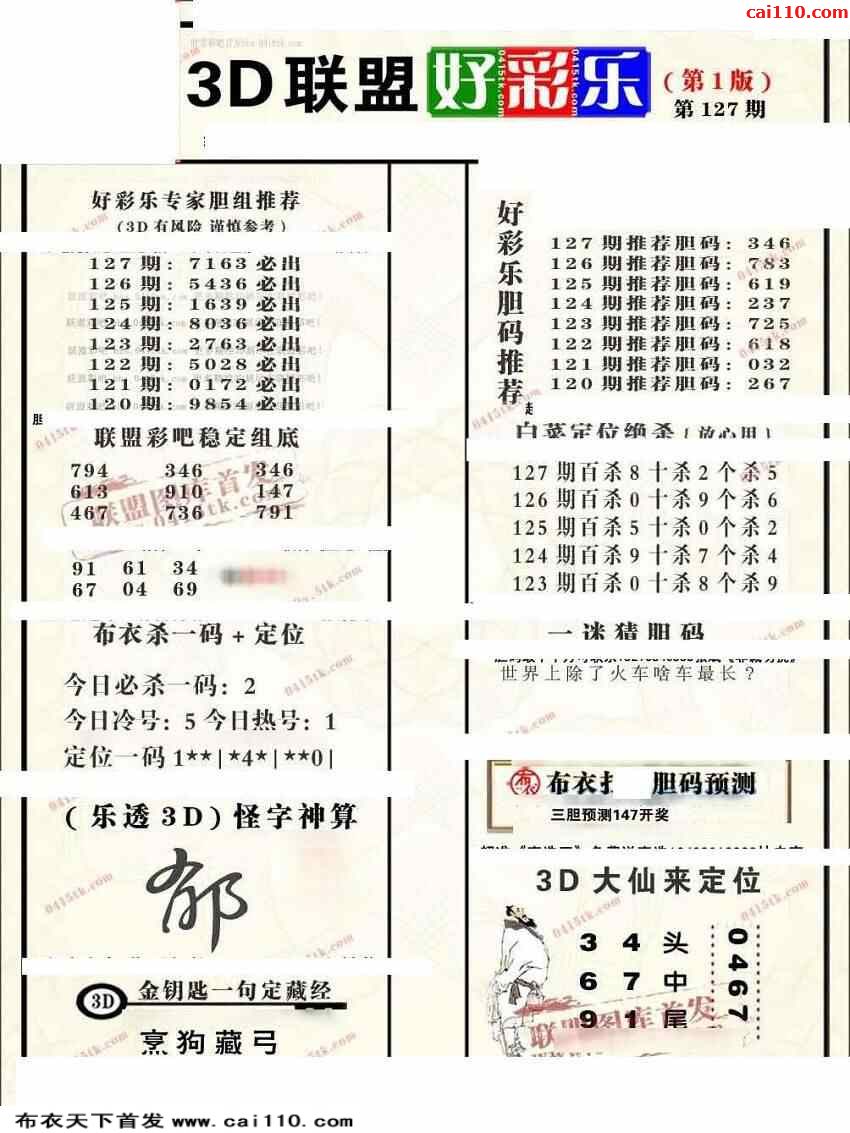 cai110.com
3D联盟好彩乐
(第1版)
第127期
好彩乐专家胆组推荐
(3D有风险 谨慎参考)
127期: 7163必出
126期: 5436必出
125期: 1639必出
124期: 8036必出
123期: 2763必出
122期: 5028必出
121期: 0172必出
120期: 9854必出
胆
联盟彩吧稳定组底
794 346 346
613 910 147
467 736 791
联盟图库首发
0415tk.com
91 61 34
67 04 69
布衣杀一码+定位
今日必杀一码: 2
今日冷号: 5 今日热号: 1
定位一码 1**|*4*|**0|
(乐透3D)怪字神算
郁
3D 金钥匙一句定藏经
烹狗藏弓
好彩乐胆码推荐
127期推荐胆码: 346
126期推荐胆码: 783
125期推荐胆码: 619
124期推荐胆码: 237
123期推荐胆码: 725
122期推荐胆码: 618
121期推荐胆码: 032
120期推荐胆码: 267
白菜定位绝杀(放心用)
127期百杀8十杀2个杀5
126期百杀0十杀9个杀6
125期百杀5十杀0个杀2
124期百杀9十杀7个杀4
123期百杀0十杀8个杀9
一谜猜胆码
世界上除了火车啥车最长?
布衣 胆码预测
三胆预测147开奖
3D大仙来定位
3 4 头
6 7 中
9 1 尾
0467
联盟图库首发
布衣天下首发 www.cai110.com